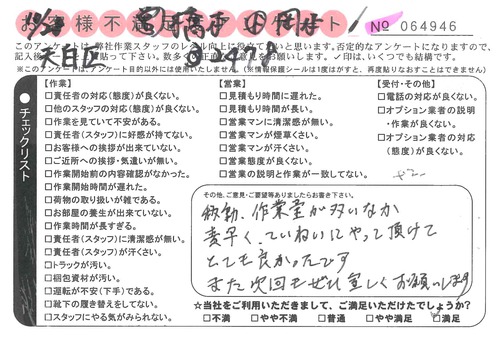 お客様不満足度アンケート
№ 064946
このアンケートは、弊社作業スタッフのレベル向上に役立てたいと思います。否定的なアンケートになりますので、
✓印は、いくつでも結構です。
※このアンケートは、アンケート目的以外には使用いたしません。(情報保護シールは1度はがすと、再度貼りなおすことはできません)
チェックリスト
【作業】
□責任者の対応(態度)が良くない。
□他のスタッフの対応(態度)が良くない。
□作業を見ていて不安がある。
□責任者(スタッフ)に好感が持てない。
□お客様への挨拶が出来ていない。
□ご近所への挨拶・気遣いが無い。
□作業開始前の内容確認がなかった。
□作業開始時間が遅れた。
□荷物の取り扱いが雑である。
□お部屋の養生が出来ていない。
□作業時間が長すぎる。
□責任者(スタッフ)に清潔感が無い。
□責任者(スタッフ)が汗くさい。
□トラックが汚い。
□梱包資材が汚い。
□運転が不安(下手)である。
□靴下の履き替えをしてない。
□スタッフにやる気がみられない。
【営業】
□見積もり時間に遅れた。
□見積もり時間が長い。
□営業マンに清潔感が無い。
□営業マンが煙草くさい。
□営業マンが汗くさい。
□営業態度が良くない。
□営業の説明と作業が一致してない。
【受付・その他】
□電話の対応が良くない。
□オプション業者の説明
・作業が良くない。
□オプション業者の対応
(態度)が良くない。
その他、ご意見・ご要望等ありましたらお書き下さい。
移動、作業量が多いなか
素早く、ていねいにやって頂けて
とても良かったです
また次回もぜひ宜しくお願いします
☆当社をご利用いただきまして、ご満足いただけたでしょうか?
□不満 □やや不満 □普通 □やや満足 □満足